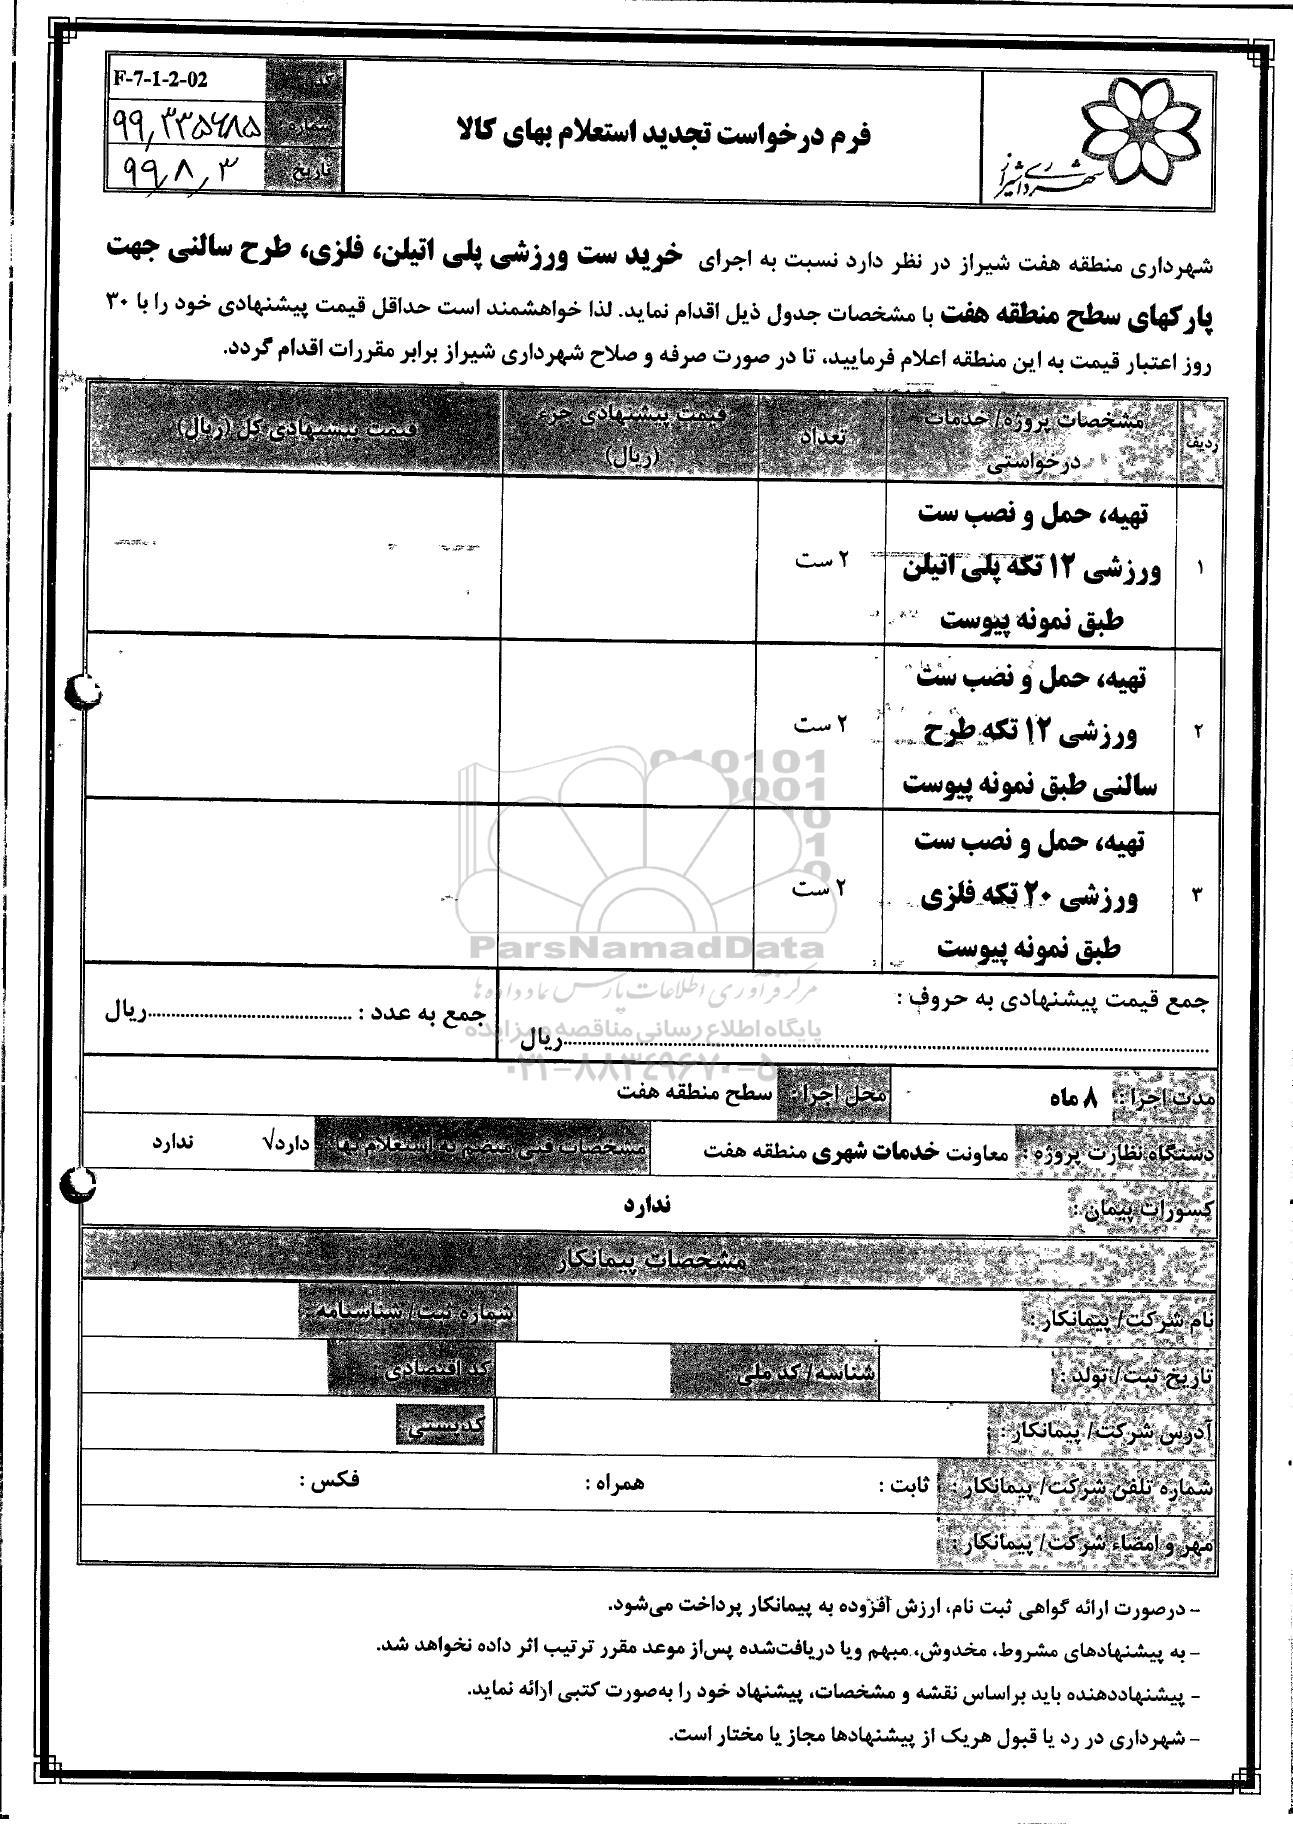 شهرداری شیراز
فرم درخواست تجدید استعلام بهای کالا
کد: F-7-1-2-02
شماره: ۹۹,۳۳۵۶۸۵
تاریخ ۹۹,۸,۳
شهرداری منطقه هفت شیراز در نظر دارد نسبت به اجرای خرید ست ورزشی پلی اتیلن، فلزی، طرح سالنی جهت
پارکهای سطح منطقه هفت با مشخصات جدول ذیل اقدام نماید. لذا خواهشمند است حداقل قیمت پیشنهادی خود را با ۳۰
روز اعتبار قیمت به این منطقه اعلام فرمایید، تا در صورت صرفه و صلاح شهرداری شیراز برابر مقررات اقدام گردد.
ردیف مشخصات پروژه/ خدمات درخواستی تعداد قیمت پیشنهادی جزء (ریال) قیمت پیشنهادی کل (ریال)
تهیه، حمل و نصب ست
۱ ورزشی ۱۲ تکه پلی اتیلن ۲ ست
طبق نمونه پیوست
تهیه، حمل و نصب ست
۲ ورزشی ۱۲ تکه طرح ۲ ست
سالنی طبق نمونه پیوست
تهیه، حمل و نصب ست
۳ ورزشی ۲۰ تکه فلزی ۲ ست
طبق نمونه پیوست
جمع قیمت پیشنهادی به حروف :
......ریال
جمع به عدد : ......ریال
ParsNamadData
مرکز فرآوری اطلاعات پارس نماد داده ها
پایگاه اطلاع رسانی مناقصه و مزایده
۰۲۱-۸۸۳۴۹۶۷۰-۵
مدت اجرا : ۸ ماه محل اجرا : سطح منطقه هفت
دستگاه نظارت پروژه : معاونت خدمات شهری منطقه هفت مشخصات فنی منضم به استعلام بها : دارد√ ندارد
کسورات پیمان : ندارد
مشخصات پیمانکار
نام شرکت/ پیمانکار : شماره ثبت/ شناسنامه
تاریخ ثبت/ تولد : شناسه/ کد ملی کد اقتصادی :
آدرس شرکت/ پیمانکار : کدپستی
شماره تلفن شرکت/ پیمانکار : ثابت : همراه : فکس :
مهر و امضاء شرکت/ پیمانکار :
- درصورت ارائه گواهی ثبت نام، ارزش افزوده به پیمانکار پرداخت می‌شود.
- به پیشنهادهای مشروط، مخدوش، مبهم ویا دریافت‌شده پس‌از موعد مقرر ترتیب اثر داده نخواهد شد.
- پیشنهاددهنده باید براساس نقشه و مشخصات، پیشنهاد خود را به‌صورت کتبی ارائه نماید.
- شهرداری در رد یا قبول هریک از پیشنهادها مجاز یا مختار است.